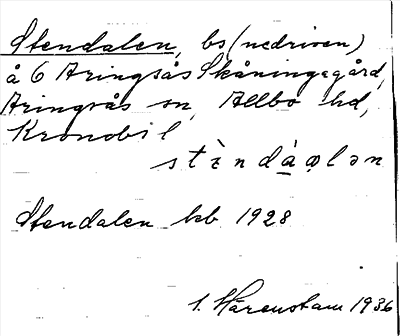 Stendalen, bs (nedriven)
å 6 Aringsås Skåningsgård,
Aringsås sn, Allbo hd,
Kronob. l
stèndàạlən
Stendalen kb 1928
1. Härenstam 1936